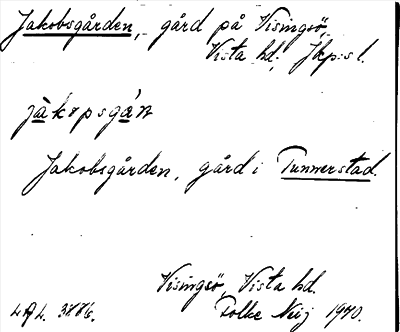 Jakobsgården, gård på Visingsö,
Vista hd. Jkp:s l.
jàkopsgán
Jakobsgården, gård i Tunnerstad.
Visingsö, Vista hd.
Folke Neij 1940.